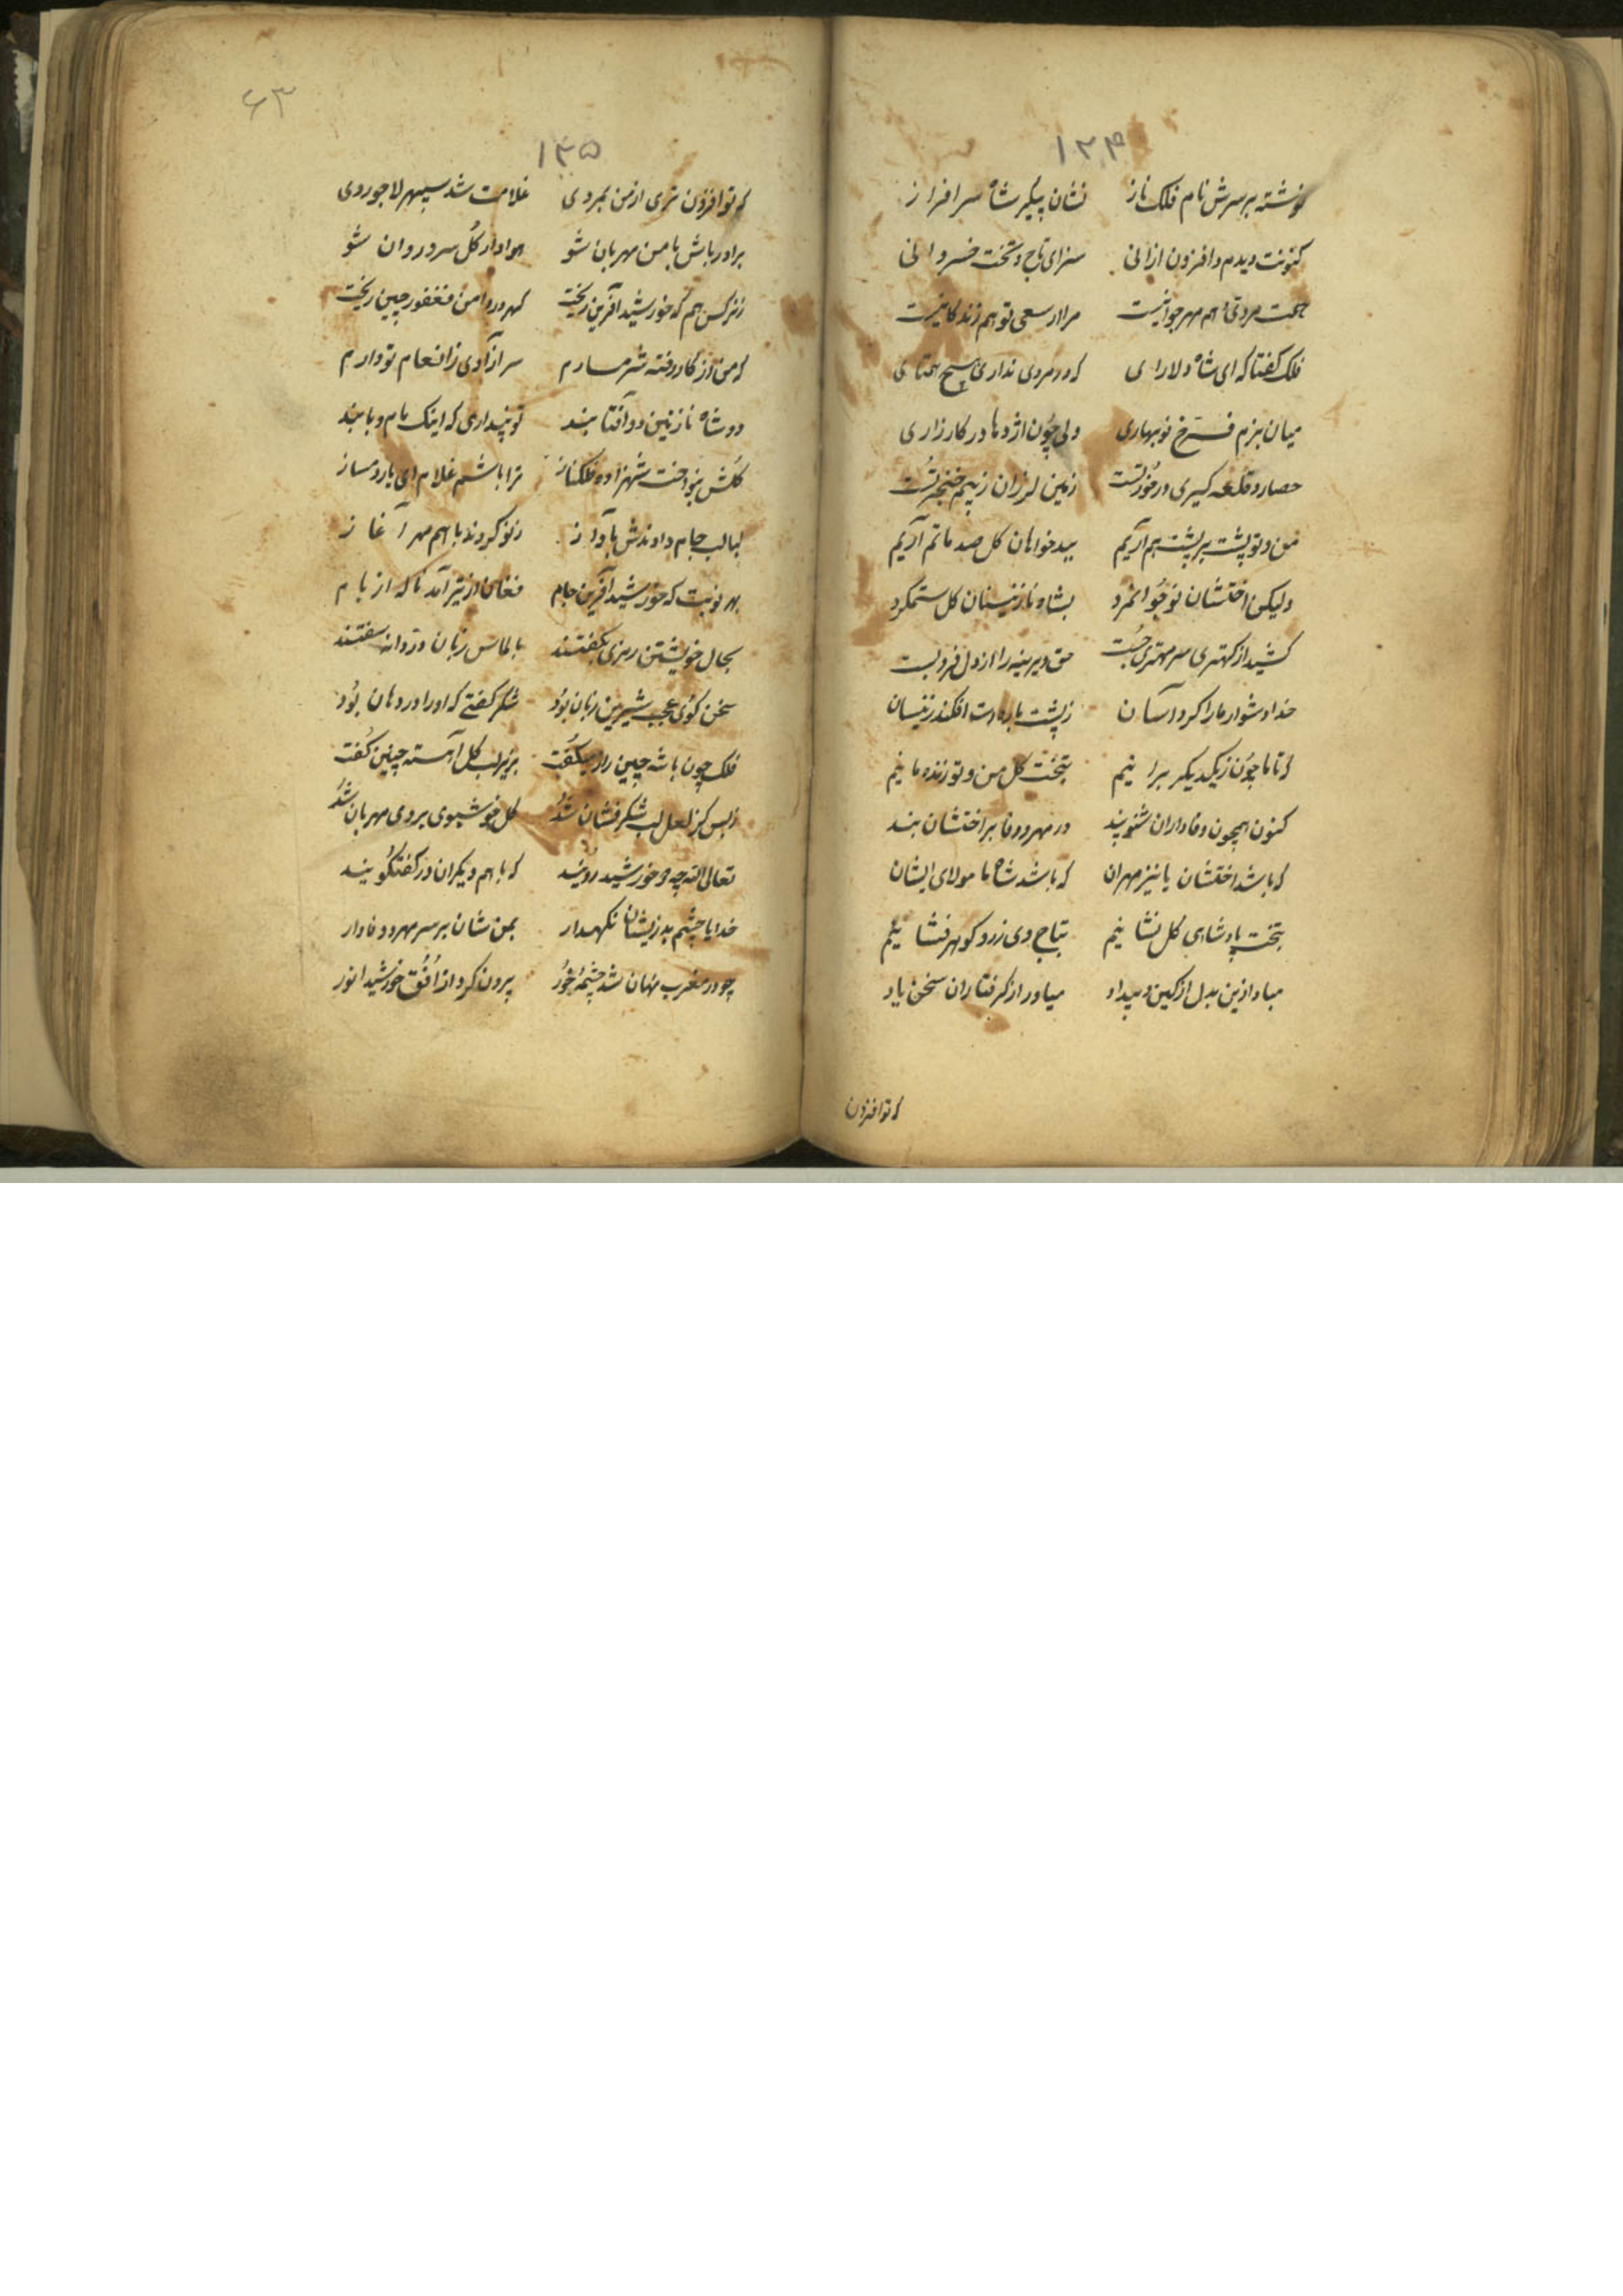 ۱۳۴
نوشته بر سرش نام فلک ناز نشان پیکر شاه سرافراز
کنونت دیدم و افزون ازانی سزای تاج و تخت خسروانی
همت مردی هم مهر جوانیست مرا از سعی تو هم زندگانیست
فلک گفتا که ای شاه دلارای که در مردی نداری هیچ همتای
میان بزم فرخ نوبهاری ولی چون اژدها در کارزاری
حصار و قلعه گیری درخور تست زمین لرزان ز بیم خنجر تست
من و تو پشت بر پشت هم آریم ببدخواهان گل صد ماتم آریم
ولیکن اختشان نوجوانمرد بشاه نازنینان کل ستم کرد
کشید از کهتری سر مهتری جست حق دیرینه را از دل فرو شست
خدا دشوار ما را کرد آسان ز پشت باره است افکند زینسان
که تا ما چون ز یکدیگر برانیم بتخت گل من و تو زنده مانیم
کنون همچون وفاداران شنو پند در مهر و وفا بر اختشان بند
که باشد اختشان با نیز مهران که باشد شاه ما مولای ایشان
بتخت پادشاهی گل نشانیم بتاج وی زر و گوهر فشانیم
مباد ازین بدل از کین و بیداد میاور از گرفتاران سخن یاد
که تو افزون
۶۳
۱۳۵
که تو افزون تری از من بمردی غلامت شد سپهر لاجوردی
برادر باش با من مهربان شو هوادار گل سرو روان شو
ز نرگس هم که خورشید آفرین ریخت گهر در دامن فغفور چین ریخت
که من از کار رفته شرمسارم سر آزادی ز انعام تو دارم
دو شاه نازنین دو آفتابند تو پنداری که اینک مام و بابند
گلش بنواخت شهزاده فلکناز ترا باشم غلام ای یار دمساز
لبالب جام دادندش بآواز ز نو کردند با هم مهر آغاز
بهر نوبت که خورشید آفرین جام فغان از تیر آمد ناگه از بام
بحال خویشتن رمزی بگفتند بالماس زبان دردانه سفتند
سخن گوی عجب شیرین زبان بود شکر گفتی که او را در دهان بود
فلک چون با شه چین راز میگفت بزیر لب گل آهسته چنین گفت
ز بس کز لعل لب شکر فشان شد گل خوشبوی بر وی مهربان شد
تعالی الله چه خورشید رویند که با هم دیگران در گفتگویند
خدایا چشم بد زیشان نگهدار بمن شان بر سر مهر و وفادار
چو در مغرب نهان شد چشمه خور برون کرد از افق خورشید انور